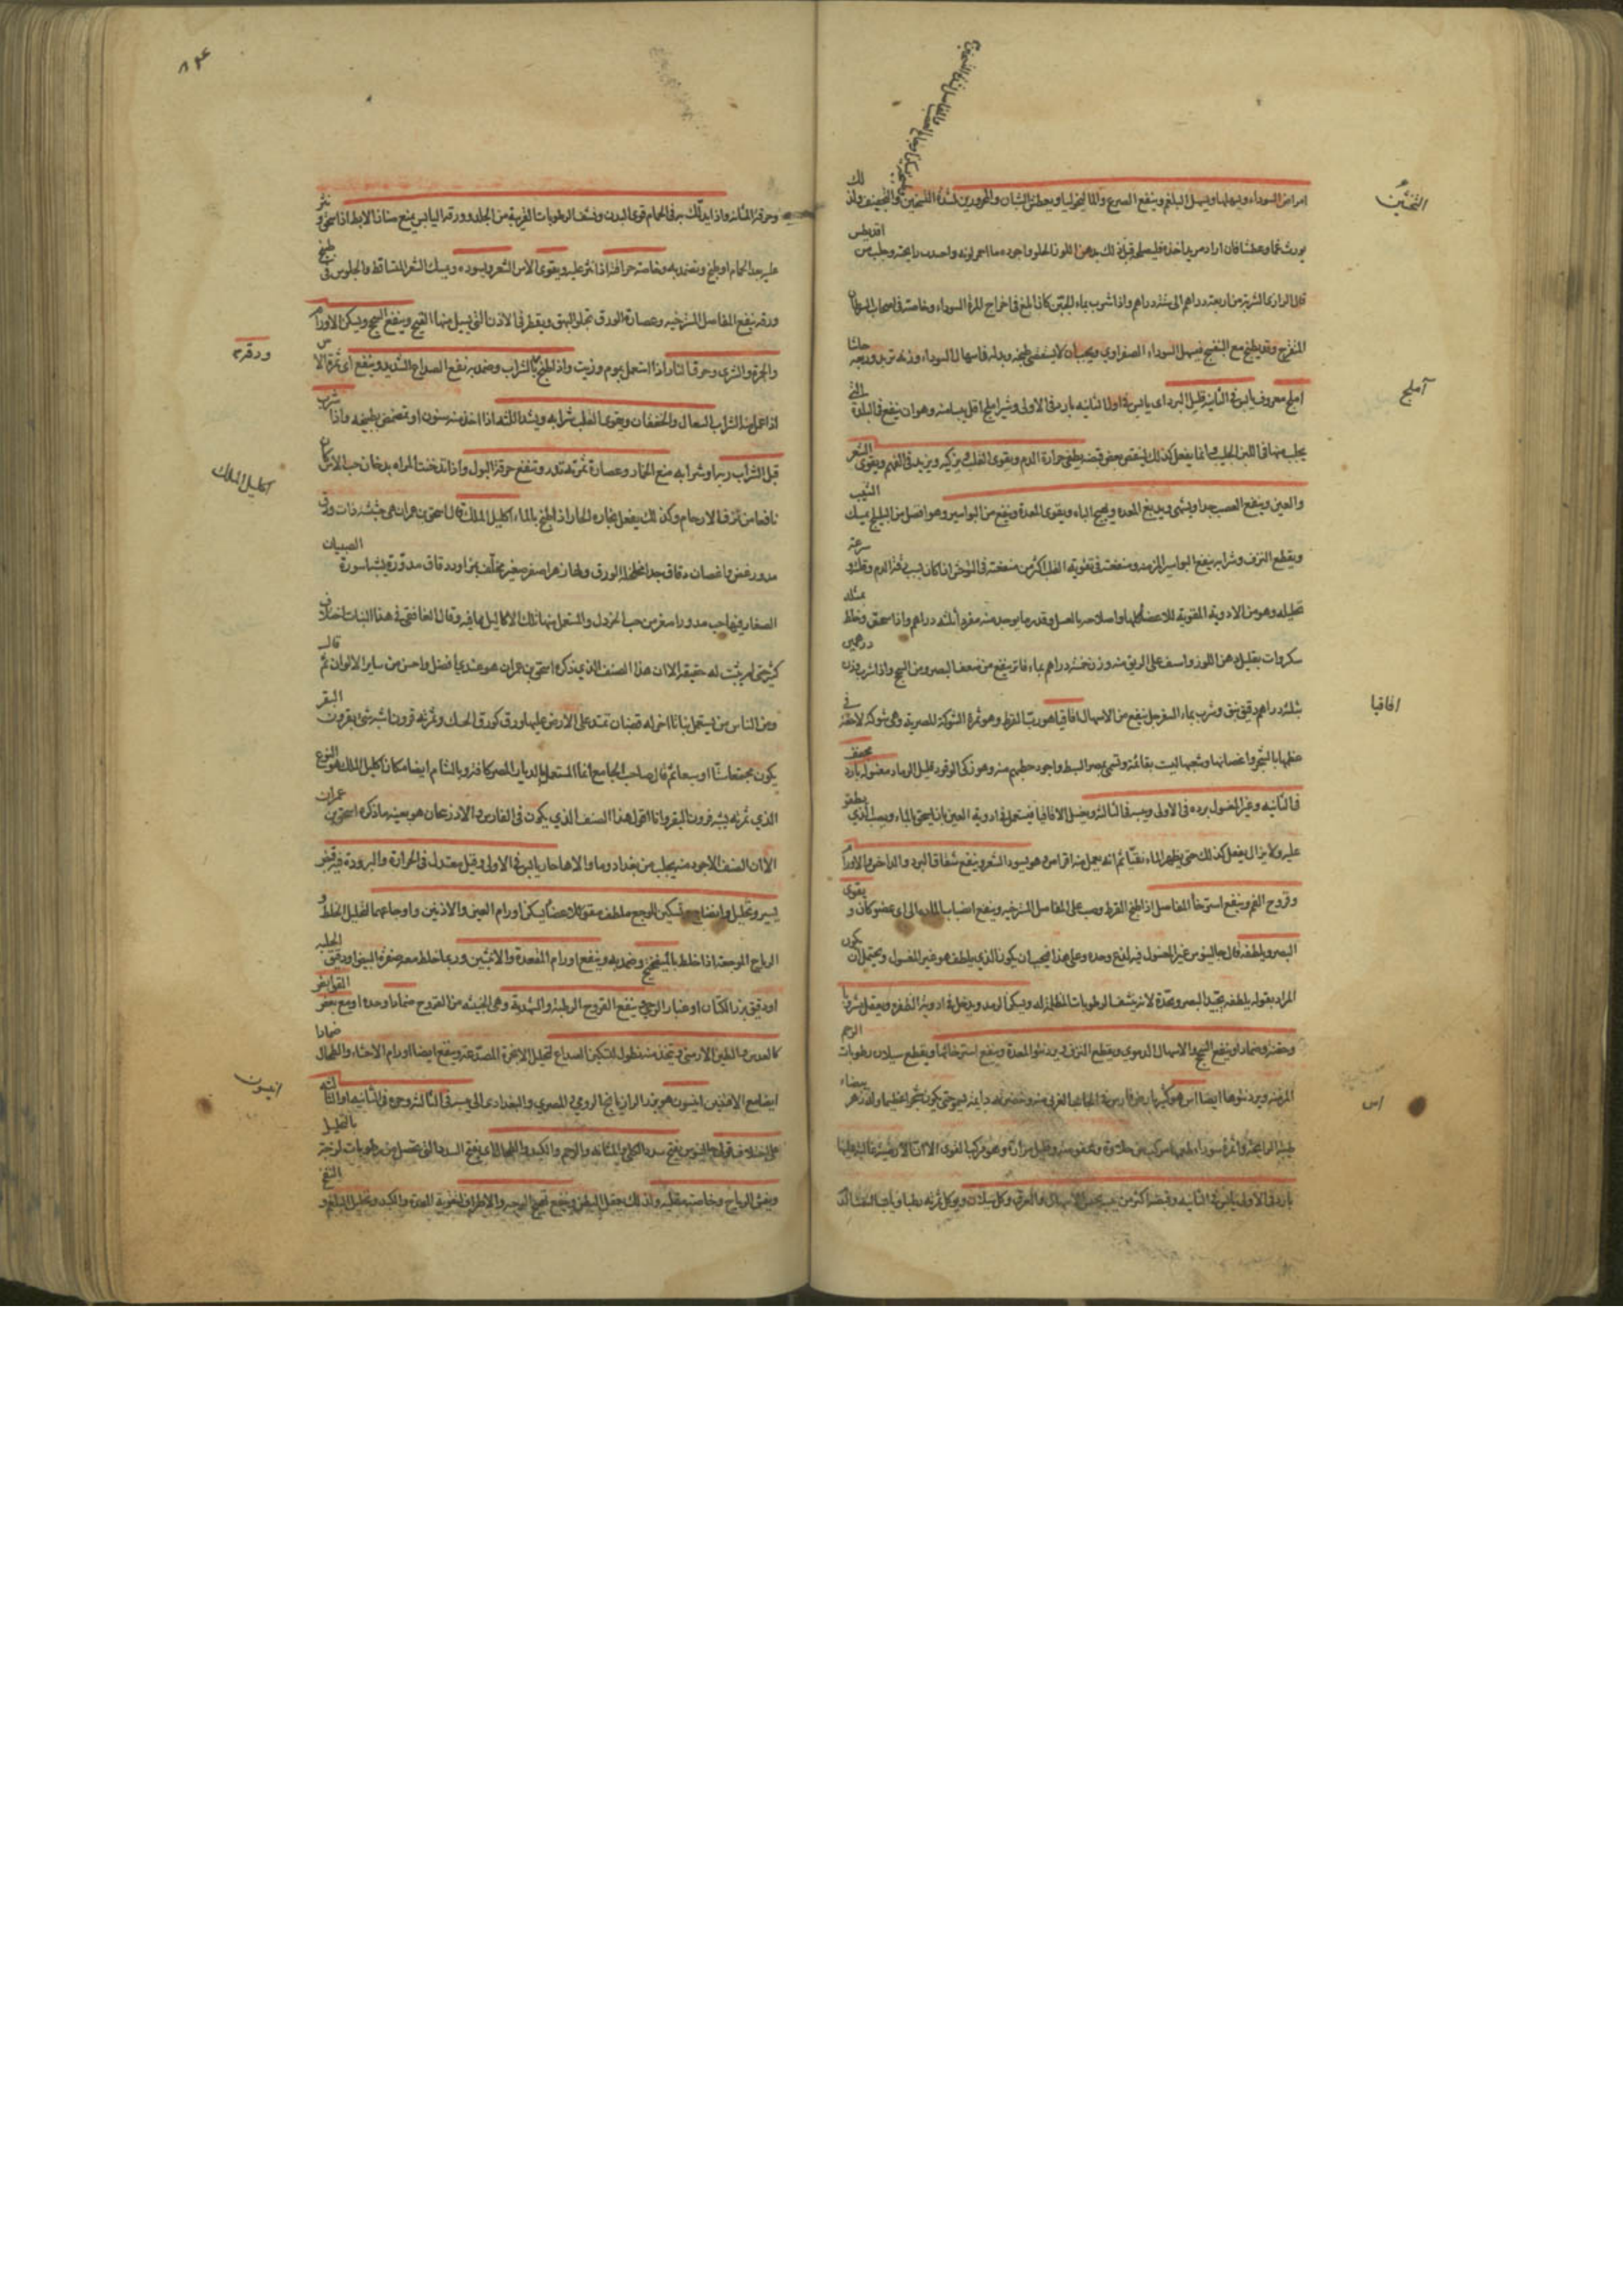 امراض السوداء ويسهلها ويسهل البلغم وينفع الصرع والماليخوليا ويعطش الشبان والمحرورين لشدة التسخين والتجفيف ولذلك
يورث غما وعطشا فان اراد مريد اخذه فليصلحه قبل ذلك بدهن اللوز الحلو واجوده ما احمر لونه واحدت رايحته وجلب من اقريطس
قال الرازى الشربة من اربعة دراهم الى ستة دراهم واذا شرب بماء الجبن كان ابلغ فى اخراج المرة السوداء وخاصة فى اصحاب السرطان
المتقرح وقد يطبخ مع البنفسج فيسهل السوداء الصفراوى ويجب ان لا يستقصى طبخه وبدله فى اسهال السوداء وزنه تربد وربعه حاشا
املج معروف يابس فى الثانية قليل البرد اى يابس فى اول الثانيه بارد فى الاولى وشير املج اقل يبسا منه وهو ان ينقع فى البلدة التى
يجلب منها فى اللبن الحليب انما يفعل كذلك لينقص بعض قبضه يطفى حرارة الدم ويقوى القلب ويزكيه ويزيد فى الفهم ويقوى الشعر
والعين وينفع العصب جدا ويشهى ويدبغ المعده ويهيج الباه ويقوى المعدة وينفع من البواسير وهو افضل من البليلج يمسك الشيب
ويقطع النزف وشرابه ينفع البواسير المزمنه ومنفعته فى تقوية القلب اكثر من منفعته فى التوحش اذا كان بسبب رقة الدم وقلته وسرعة
تحليله وهو من الادوية المقوية للاعضا كلها واصلاحه بالعسل وقدر ما يوخذ منه مفردا ثلثه دراهم واذا سحق وخلط بمثله
سكر ولت بقليل دهن اللوز واستف على الريق منه وزن خمسة دراهم بماء فاتر ينفع من ضعف البصر ومن السحج واذا شرب وزن درهمين
بثلثه دراهم دقيق نبق وشرب بماء السفرجل ينفع من الاسهال اقاقيا هو رب القرظ وهو ثمرة الشوكة المصريه وهى شوكة لاحقة فى
عظمها بالشجر واغصانها وشعبها ليست بقائمة وتسمى بمصر السنط واجود حطبهم منه وهو ذكى الوقود قليل الرماد مغسوله بارد مجفف
فى الثانيه وغير المغسول برده فى الاولى ويبسه فى الثالثه ويغسل الاقاقيا فيستعمل فى ادوية العين بان يسحق بالماء ويصب الذى يطفو
عليه ولا يزال يفعل كذلك حتى يظهر الماء نقيا ثم انه يعمل منه اقراص وهو يسود الشعر وينفع شقاق البرد والداحس والاورام
وقروح الفم وينفع استرخا المفاصل اذا طبخ القرظ وصب على المفاصل المسترخيه وينفع انصباب المادة الى اى عضو كان ويقوى
البصر ويلطفه قال جالينوس غير المغسول فيه لذع وحده وعلى هذا فيجب ان يكون الذى يلطف هو غير المغسول ويحتمل ان يكون
المراد بقوله يلطفه يجيد البصر ويحده لانه ينشف الرطوبات المظلمة له ويسكن الرمد ويدخل فى ادوية الظفره ويعقل شربا
وحقنة وضمادا وينفع السحج والاسهال الدموى ويقطع النزف ويرد نتو المعدة وينفع استرخائها ويقطع سيلان رطوبات الرحم
المزمنه ويرد نتوها ايضا آس هو كثير بارض فارس فى الجانب الغربى منه وخضرته دايمة ينمو حتى يكون شجرا عظيما وله زهرة بيضاء
طيبة الرايحة وثمرة سوداء طعمها مركب من حلاوة وعفوصة وقليل مرارة وهو مركب القوى الا ان الارضيه غالبة عليها
بارد فى الاولى يابس فى الثانيه وقبضه اكثر من يحبس الاسهال والعرق وكل سيلان ويوكل ثمرته رطبا ويابسا لنفث الدم
التختين
آملج
اقاقيا
آس
٨٢٤
وحرقة المثانه واذا تدلك به فى الحمام قوى البدن ونشف الرطوبات الغريبة من الجلد وورقه اليابس يمنع صنان الابط اذا سحق ونثر
عليه بعد الحمام او طبخ وتضمد به وخاصة حراقته اذا نثر عليه ويقوى الآس الشعر ويسوده ويمسك الشعر المتساقط والجلوس فى طبيخ
ورقه ينفع المفاصل المسترخيه وعصارة الورق تجلو البهق ويقطر فى الاذن التى يسيل منها القيح وينفع السحج ويسكن الاورام
والجمرة والشرى وحرق النار اذا استعمل بموم وزيت واذا طبخ بالشراب وضمد به نفع الصداع الشديد وينفع اى ثمرة الآس
اذا عمل منه الشراب السعال والخفقان ويقوى القلب شرابه ويشد اللثه اذا اخذ منه سنون او تمضمض بطبيخه واذا شرب
قبل الشراب ربه او شرابه منع الخمار وعصارة ثمرته تدر وتنفع حرقة البول واذا تدخنت المراه بدخان حب الآس كان
نافعا من نزف الارحام وكذلك يفعل بخاره الحار اذا طبخ بالماء اكليل الملك قال اسحق بن عمران هى حشيشة ذات ورق
مدور غض واغصان دقاق جدا مخلخلة الورق ولها زهر اصفر صغير يخلف مزاود دقاق مدورة يشبه اسورة الصبيان
الصغار فيها حب مدور اصغر من حب الخردل والمستعمل منها تلك الاكاليل بما فيه وقال الغافقى فى هذا النبات اختلاف
كثير حتى لم يثبت له حقيقة الا ان هذا الصنف الذى يذكره اسحق بن عمران هو عندى افضل واحسن من ساير الالوان ثم قال
ومن الناس من يستعمل نباتا اخر له قضبان تمتد على الارض عليها ورق كورق الحسك وثمرته قرون اشبه شئ بقرون البقر
يكون مجتمعة ستا او سبعا ثم قال صاحب الجامع انما المستعمل بالديار المصريه كافة وبالشام ايضا مكان اكليل الملك هو النوع
الذى ثمرته يشبه قرون البقر وانا اقول هذا الصنف الذى يكون فى الفارس والاذربيجان هو بعينه ما ذكره اسحق بن عمران
الا ان الصنف الاجود منه يجلب من بغداد وما والاها حار يابس فى الاولى وقيل معتدل فى الحرارة والبرودة فيه قبض
يسير وتحليل وانضاج وتسكين الوجع ملطف مقو للاعضا يسكن اورام العين والاذنين واوجاعهما لتحليل الخلط و
الرياح الموجعة اذا خلط بالميفختج وضمد به وينفع اورام المقعدة والانثيين وربما خلط معه صفرة البيض او دقيق الحلبه
او دقيق بزر الكتان او غبار الرحى وينفع القروح الرطبة والشهدية وهى الخبيثه من القروح ضمادا وحده او مع بعض القوابض
كالعدس والطين الارمنى ويتخذ منه نطول لتسكين الصداع لتحليل الابخرة المصدعة وينفع ايضا اورام الاحشاء والطحال ضمادا
ايضا مع الافسنتين انيسون هو بزر الرازيانج الرومى المصرى والبغدادى الى يبس فى الثالثه وحره فى الثانيه او الثالثه
على اختلاف قول جالينوس يفتح سدد الكلى والمثانه والرحم والكبد والطحال اعنى يفتح السدد التى تحصل من رطوبات لزجة بالتحليل
ويفش الرياح وخاصة مقليه ولذلك يعقل البطن وينفع تهيج الوجه والاطراف لتقوية المعدة والكبد وتحليل البلغم والنفخ
ورقه
اكليل الملك
انيسون